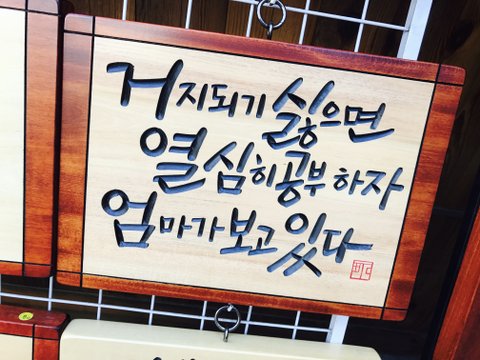 거지되기 싫으면
열심히공부하자
엄마가보고있다